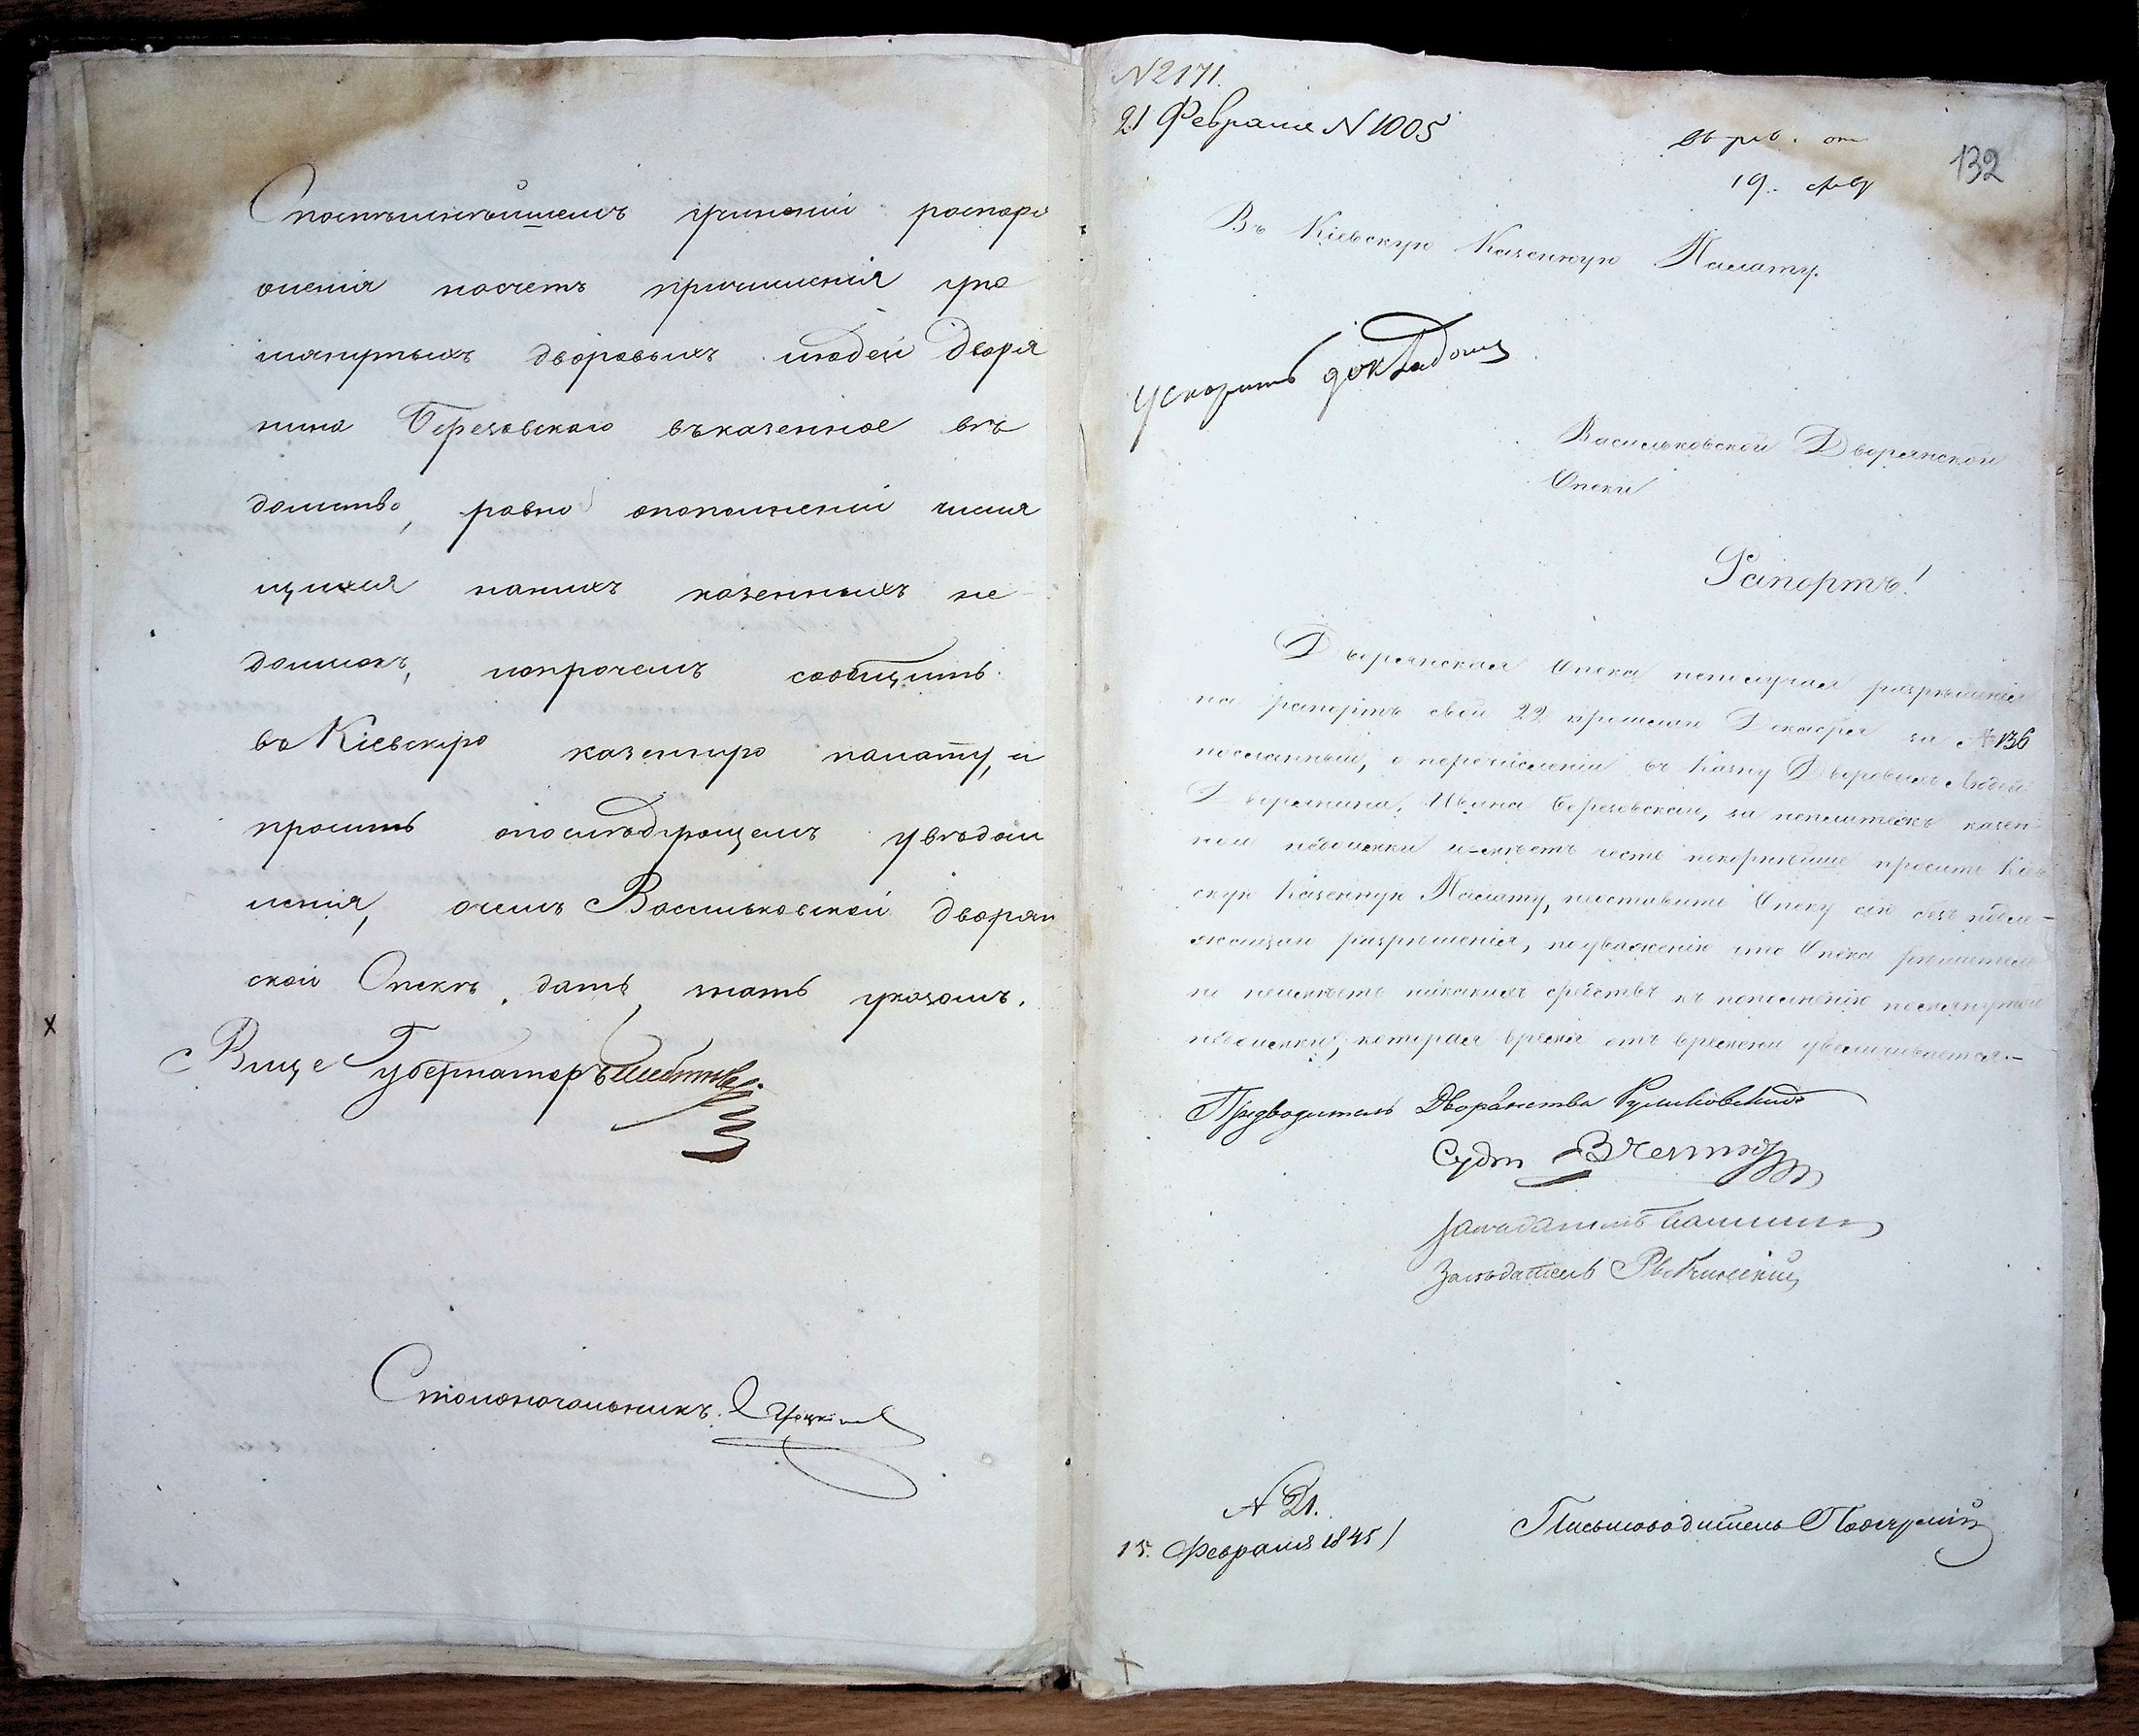 Споспѣшнѣйшемъ учиненіи распоря
женія насчетъ причисленія упо
мянутыхъ дворовыхъ людей Дворя
нина Березовскаго въказенное вѣ
домство, равно опополненіи числя
щихся наних казенныхъ не
доимокъ, напрочемъ сообщить
въ Кіевскую казенную палату, и
просить опослѣдующемъ увѣдом
ленія, очемъ Васильковской дворян
ской Опекѣ, дать знать указомъ.
Вице Губернаторъ
Столоначальникъ
N 2171.
21 Февраля N 1005
132
19. фев
Въ Кіевскую Казенную Палату.
Ускорить докладомъ
Васильковской Дворянской
Опеки
Рапортъ!
Дворянская Опека неполучая разрѣшенія
на рапортъ свой 22 прошлаго Декабря за № 136
посланный, о перечисленіи въ Казну Дворовыхъ Людей
Дворянина, Ивана Березовскаго, за неплатежъ казен
ной недоимки имѣетъ честь покорнѣйше просить Кіев
скую Казенную Палату, неоставить Опеку сію безъ надле-
жащаго разрѣшенія, поуваженію что Опека рѣшитель
но неимѣетъ никакихъ средствъ къ пополненію помянутой
недоимки, которая время отъ времени увеличивается.-
Предводитель Дворянства Руликовскій
Судья
Засѣдатель
Засѣдатель
N 21.
15. Февраля 1845
Письмоводитель